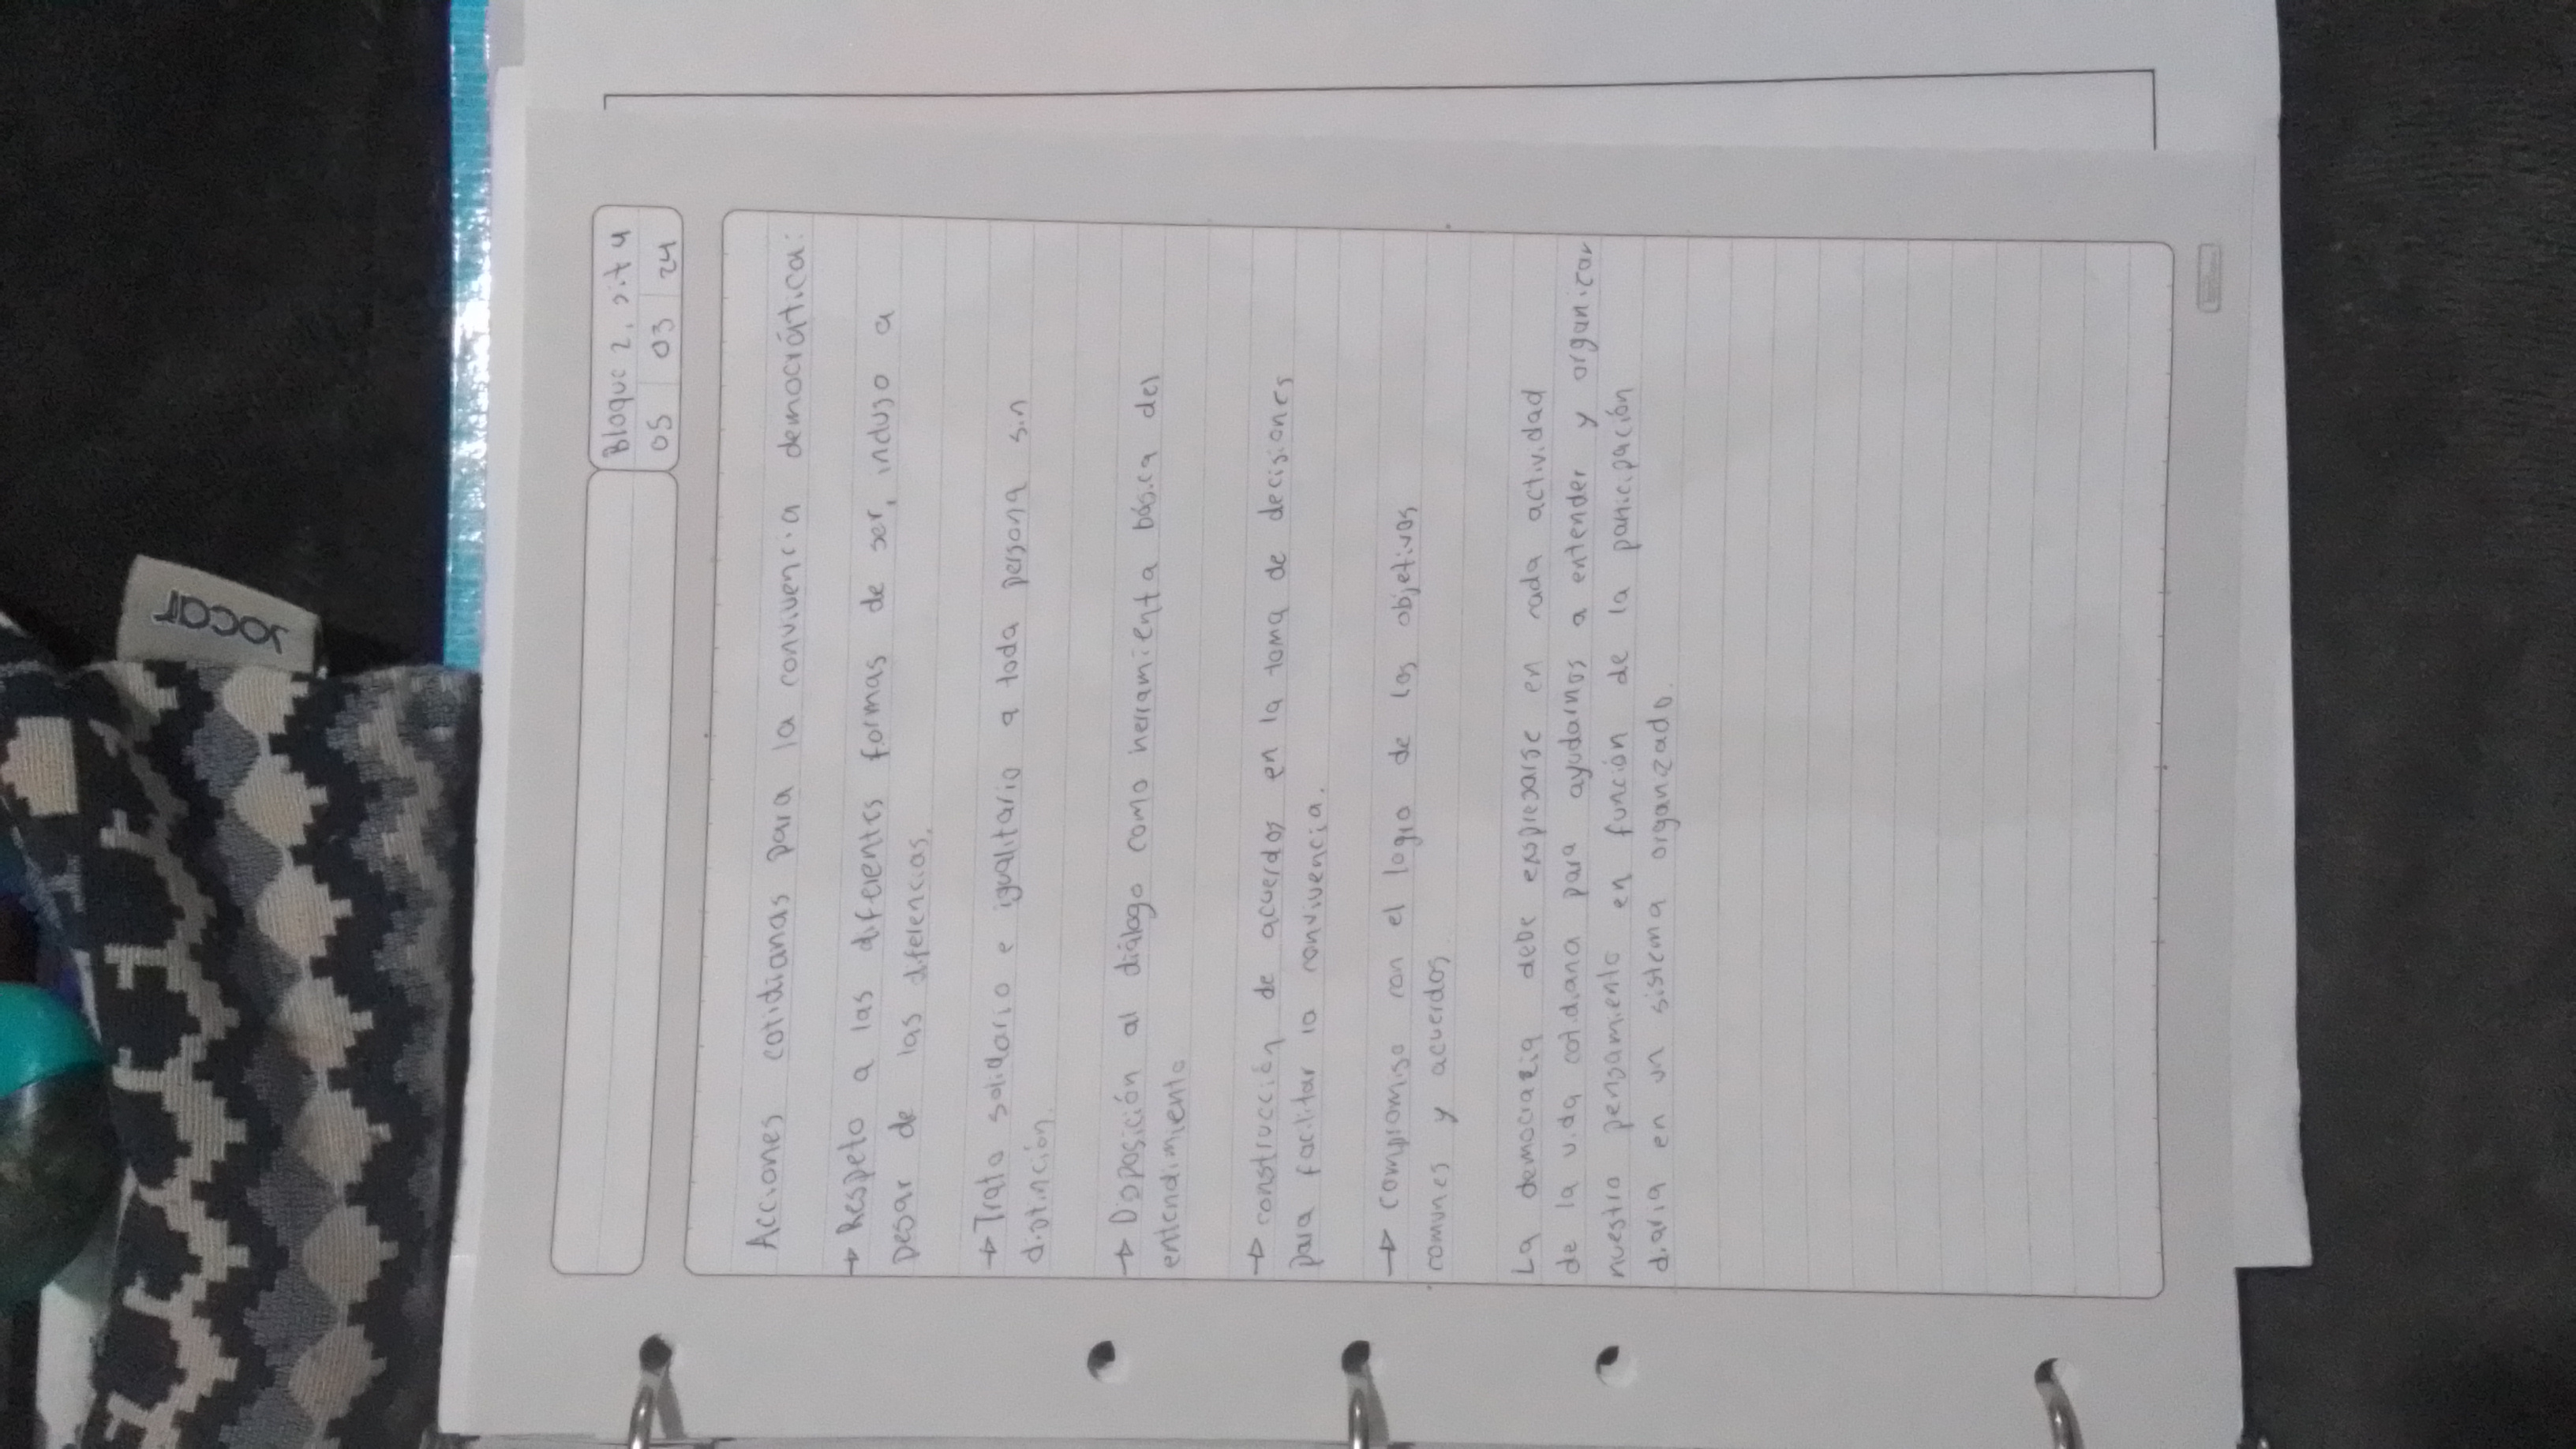 Bloque 2, sit 4
05 03 24
Acciones cotidianas para la convivencia democrática:
→ Respeto a las diferentes formas de ser, incluso a
pesar de las diferencias.
→ Trato solidario e igualitario a toda persona sin
distinción.
→ Disposición al diálogo como herramienta básica del
entendimiento
→ construcción de acuerdos en la toma de decisiones
para facilitar la convivencia.
→ compromiso con el logro de los objetivos
comunes y acuerdos.
La democracia debe expresarse en cada actividad
de la vida cotidiana para ayudarnos a entender y organizar
nuestro pensamiento en función de la participación
diaria en un sistema organizado.
Jocar